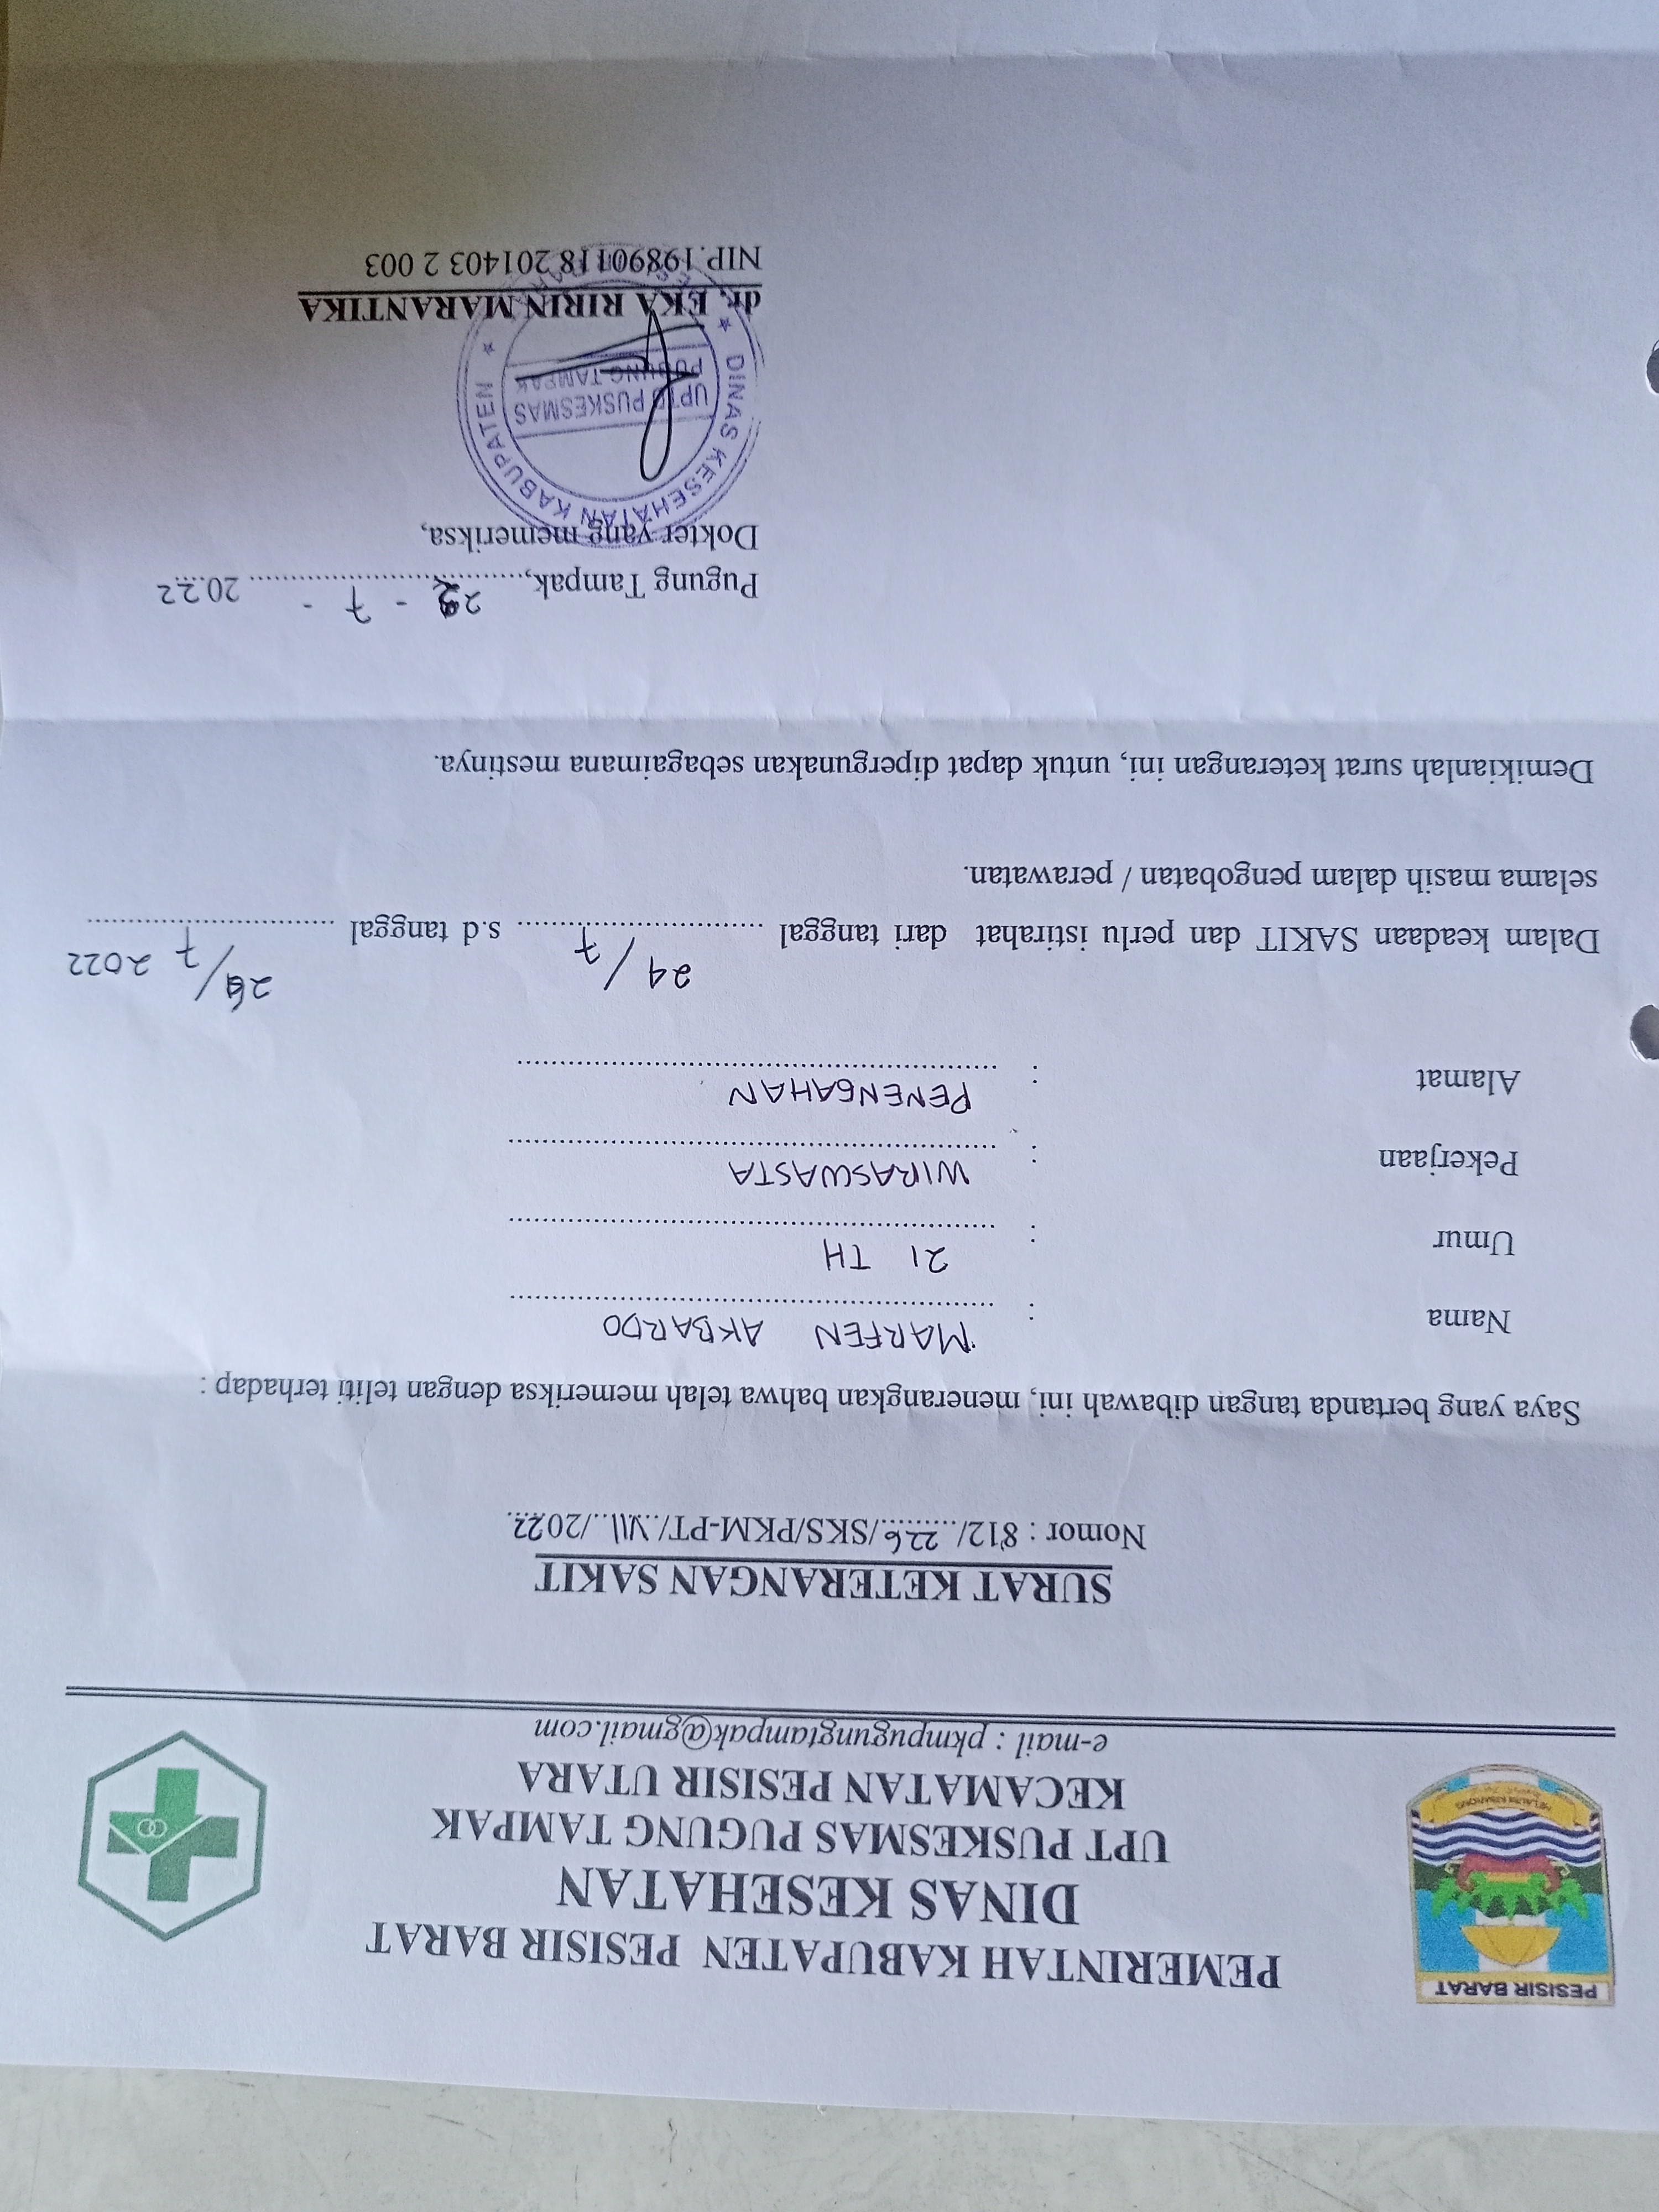 PESISIR BARAT
PEMERINTAH KABUPATEN PESISIR BARAT
DINAS KESEHATAN
UPT PUSKESMAS PUGUNG TAMPAK
KECAMATAN PESISIR UTARA
e-mail : pkmpugungtampak@gmail.com
SURAT KETERANGAN SAKIT
Nomor : 812/ 226 /SKS/PKM-PT/ VII /2022
Saya yang bertanda tangan dibawah ini, menerangkan bahwa telah memeriksa dengan teliti terhadap :
Nama : MARFEN AKBARDO
Umur : 21 TH
Pekerjaan : WIRASWASTA
Alamat : PENENGAHAN
Dalam keadaan SAKIT dan perlu istirahat dari tanggal 24/7 s.d tanggal /7 2022
selama masih dalam pengobatan / perawatan.
Demikianlah surat keterangan ini, untuk dapat dipergunakan sebagaimana mestinya.
Pugung Tampak, - 7 - 2022
Dokter yang memeriksa,
DINAS KESEHATAN KABUPATEN
UPTD PUSKESMAS
PUGUNG TAMPAK
dr. EKA RIRIN MARANTIKA
NIP.19890118 201403 2 003